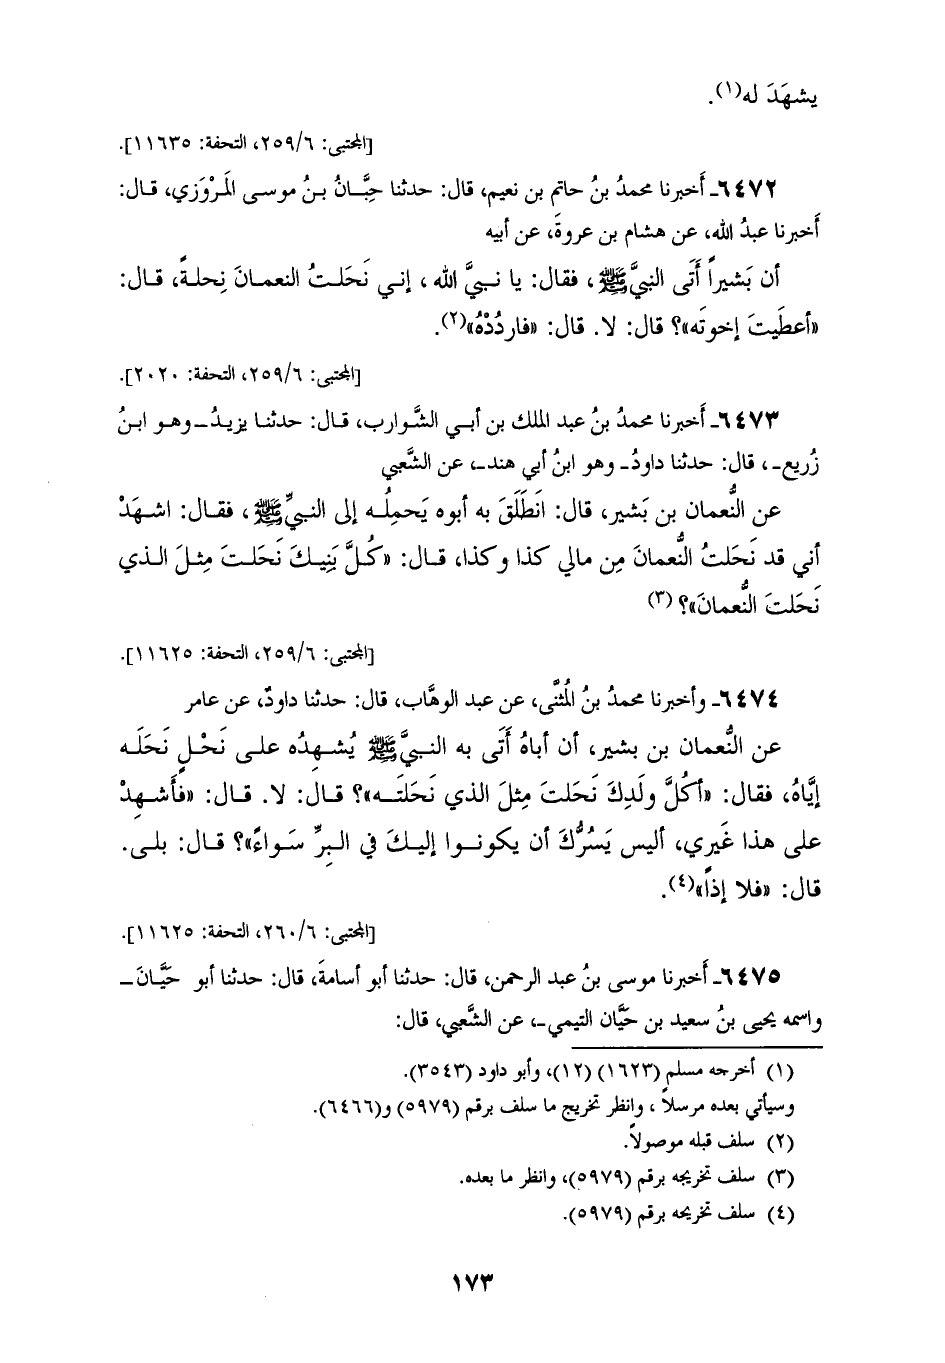 يشهَدَ له(١).
[المجتبى: ٢٥٩/٦، التحفة: ١١٦٣٥].
٦٤٧٢ـ أَخبرنا محمدُ بنُ حاتم بن نعيم، قال: حدثنا حِبَّـانُ بـنُ موسـى المَـرْوَزي، قـال:
أَخبرنا عبدُ الله، عن هشام بن عروةَ، عن أبيه
أن بَشيراً أَتَى النبيَّ ﷺ، فقال: يا نـبـيَّ الله ، إنـي نَحَلـتُ النعمـانَ نِحلـةً، قـال:
«أَعطَيتَ إخوتَه»؟ قال: لا. قال: «فاردُدْهُ»(٢).
[المجتبى: ٢٥٩/٦، التحفة: ٢٠٢٠].
٦٤٧٣ـ أَخبرنا محمدُ بنُ عبد الملك بن أبـي الشَّوارب، قـال: حدثنـا يزيـدُ ـ وهـو ابـنُ
زُريع ـ، قال: حدثنا داودُ ـ وهو ابنُ أبي هند ـ، عن الشَّعبي
عن النُّعمان بن بَشير، قال: انَطَلَقَ به أبوه يَحمِلُـه إلى النبيِّ ﷺ ، فقـال: اشـهَدْ
أني قد نَحَلتُ النُّعمانَ مِن مالي كذا وكذا، قـال: «كُـلَّ بَنِيـكَ نَحَلـتَ مِثـلَ الـذي
نَحَلتَ النُّعمانَ»؟ (٣)
[المجتبى: ٢٥٩/٦، التحفة: ١١٦٢٥].
٦٤٧٤ـ وأخبرنا محمدُ بنُ المُثنَّى، عن عبد الوهَّاب، قال: حدثنا داودٌ، عن عامر
عن النُّعمان بن بشير، أن أباهُ أَتَى به النـبـيَّ ﷺ يُشـهِدُه علـى نَحْـلٍ نَحَلَـه
إيَّاهُ، فقال: «أكُلَّ ولَدِكَ نَحَلتَ مِثلَ الذي نَحَلتَـه»؟ قـال: لا. قـال: «فأَشـهِدْ
على هذا غَيري، أليس يَسُرُّكَ أن يكونـوا إليـكَ في الـبِرِّ سَـواءً»؟ قـال: بلـى.
قال: «فلا إذاً»(٤).
[المجتبى: ٢٦٠/٦، التحفة: ١١٦٢٥].
٦٤٧٥ـ أَخبرنا موسى بنُ عبد الرحمن، قال: حدثنا أبو أسامةَ، قال: حدثنا أبو حَيَّـانَ ـ
واسمه يحيى بنُ سعيد بن حَيَّان التيمي ـ، عن الشَّعبي، قال:
(١) أخرجه مسلم (١٦٢٣) (١٢)، وأبو داود (٣٥٤٣).
وسيأتي بعده مرسلاً ، وانظر تخريج ما سلف برقم (٥٩٧٩) و(٦٤٦٦).
(٢) سلف قبله موصولاً.
(٣) سلف تخريجه برقم (٥٩٧٩)، وانظر ما بعده.
(٤) سلف تخريجه برقم (٥٩٧٩).
١٧٣